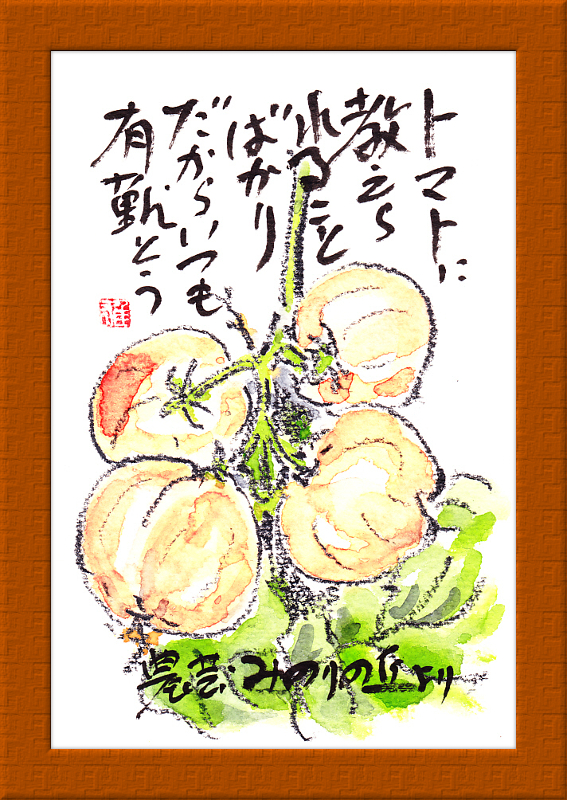 トマトに
教えら
れること
ばかり
だからいつも
有難とう
雅
農芸みのりの丘より